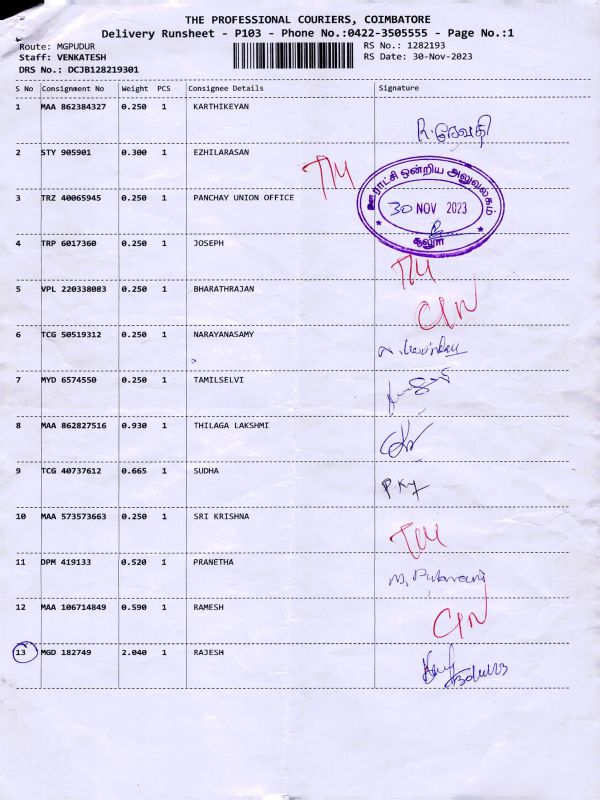 THE PROFESSIONAL COURIERS, COIMBATORE
Delivery Runsheet - P103 - Phone No.:0422-3505555 - Page No.:1
Route: MGPUDUR
RS No.: 1282193
Staff: VENKATESH
RS Date: 30-Nov-2023
DRS No.: DCJB128219301
S No Consignment No Weight PCS Consignee Details Signature
1 MAA 862384327 0.250 1 KARTHIKEYAN
R. ரேவதி
2 STY 905901 0.300 1 EZHILARASAN
ஊராட்சி ஒன்றிய அலுவலகம்
3 TRZ 40065945 0.250 1 PANCHAY UNION OFFICE
30 NOV 2023
சூலூர்
4 TRP 6017360 0.250 1 JOSEPH
5 VPL 220338083 0.250 1 BHARATHRAJAN
6 TCG 50519312 0.250 1 NARAYANASAMY
7 MYD 6574550 0.250 1 TAMILSELVI
8 MAA 862827516 0.930 1 THILAGA LAKSHMI
9 TCG 40737612 0.665 1 SUDHA
10 MAA 573573663 0.250 1 SRI KRISHNA
11 DPM 419133 0.520 1 PRANETHA
12 MAA 106714849 0.590 1 RAMESH
13 MGD 182749 2.040 1 RAJESH